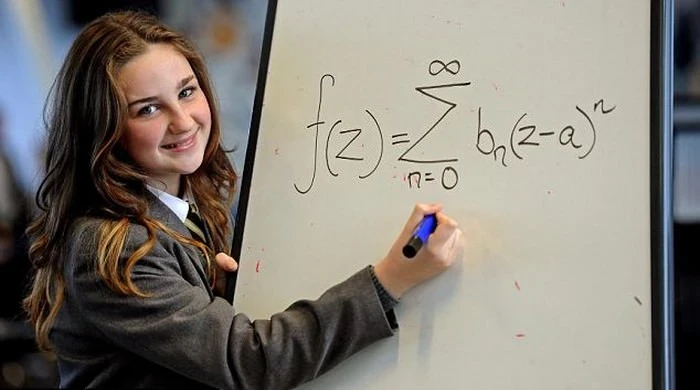 f(z) = ∞∑n=0 bₙ(z-a)ⁿ